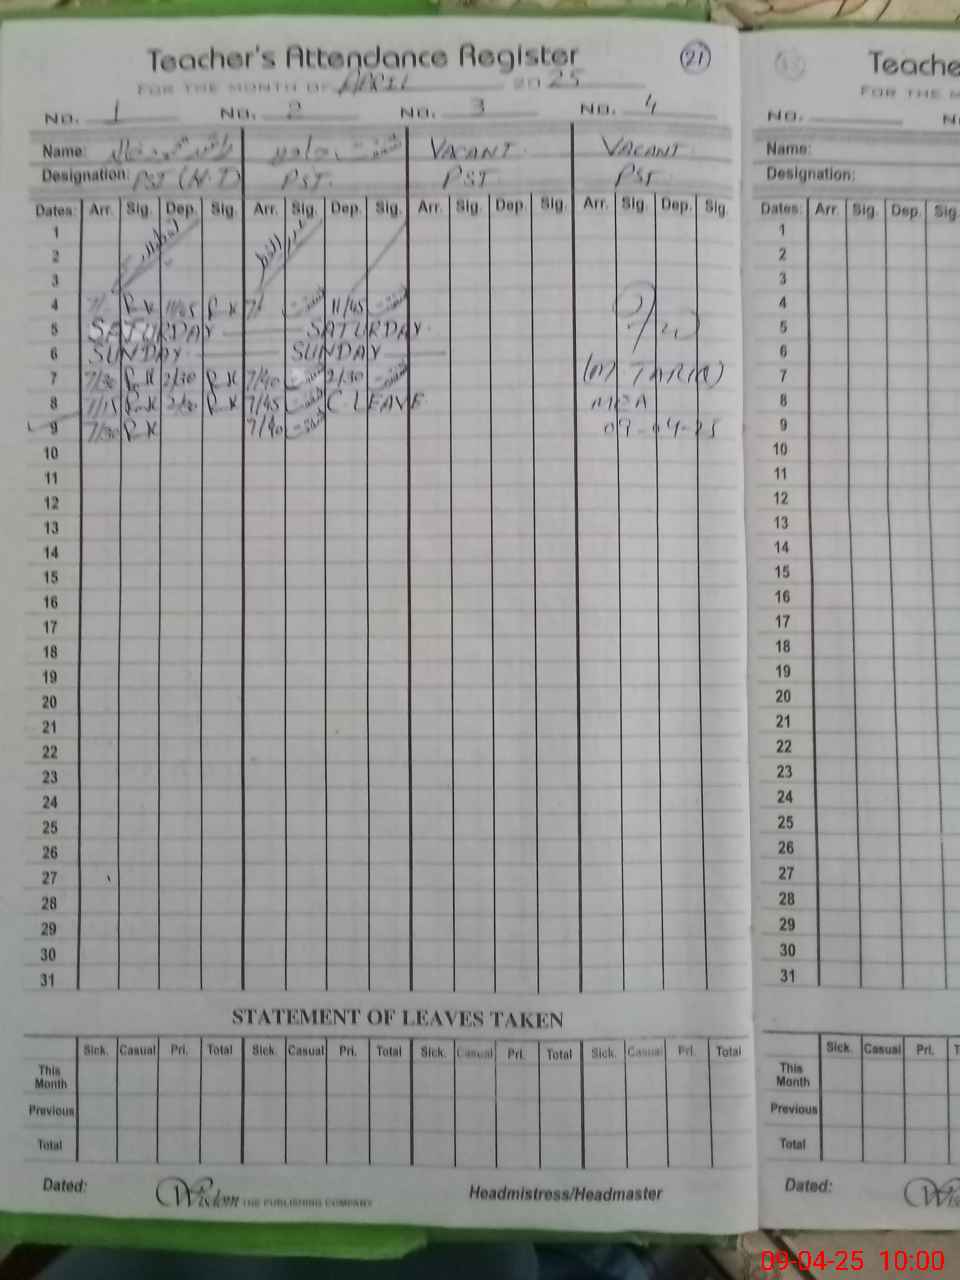 Teacher's Attendance Register
21
FOR THE MONTH OF APRIL 2025
No. 1 No. 2 No. 3 No. 4
Name: VACANT VACANT
Designation: PST (H.T) PST. PST PST
Dates: Arr. Sig. Dep. Sig. Arr. Sig. Dep. Sig. Arr. Sig. Dep. Sig. Arr. Sig. Dep. Sig.
1
2
3
4 R.K 11/45 R.K 11/45
5 SATURDAY SATURDAY
6 SUNDAY SUNDAY
7 7/30 R.K 2/30 R.K 7/40 2/30 (M TARIQ)
8 7/15 R.K 2/30 R.K 7/45 C. LEAVE MEA
9 7/30 R.K 7/40 09-04-25
10
11
12
13
14
15
16
17
18
19
20
21
22
23
24
25
26
27
28
29
30
31
STATEMENT OF LEAVES TAKEN
Sick. Casual Pri. Total Sick. Casual Pri. Total Sick. Casual Pri. Total Sick. Casual Pri. Total
This Month
Previous
Total
Dated:
Wisdom THE PUBLISHING COMPANY
Headmistress/Headmaster
Teache
FOR THE M
No.
Name:
Designation:
Dates: Arr. Sig. Dep. Sig.
1
2
3
4
5
6
7
8
9
10
11
12
13
14
15
16
17
18
19
20
21
22
23
24
25
26
27
28
29
30
31
Sick. Casual Pri. T
This Month
Previous
Total
Dated:
09-04-25 10:00